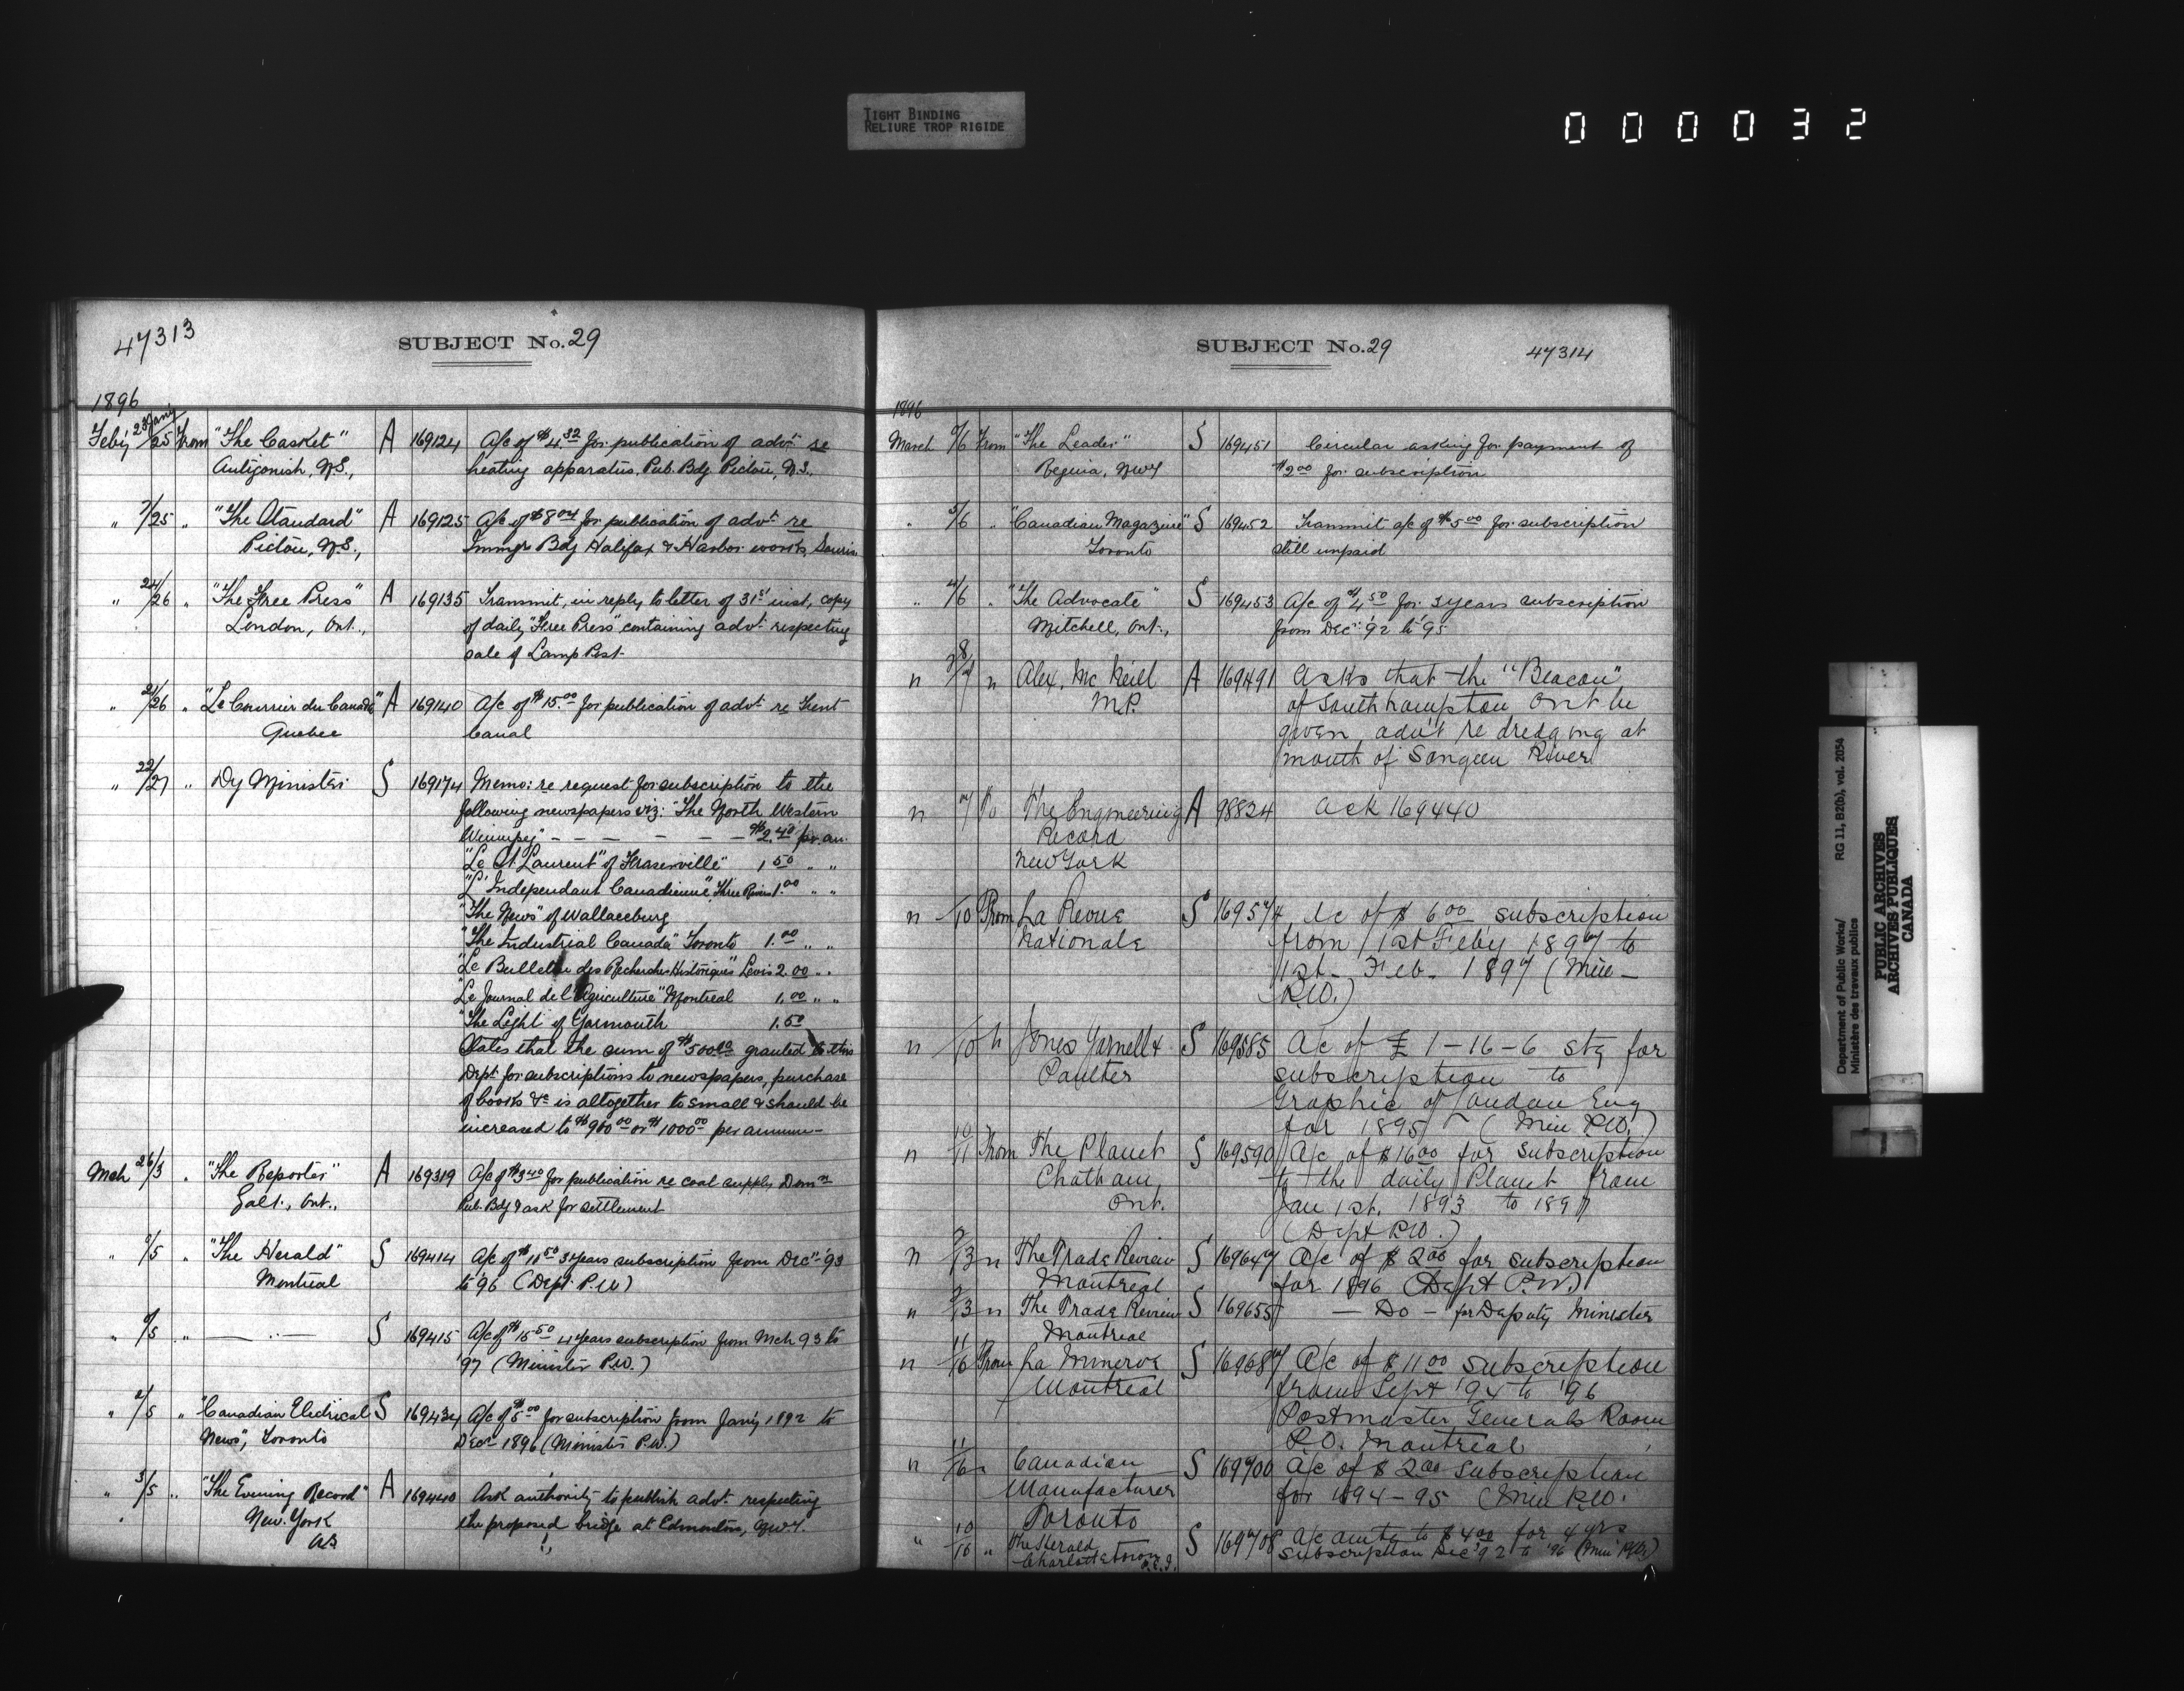 TIGHT BINDING
RELIURE TROP RIGIDE
000032
47313
SUBJECT No. 29
1896
Feb'y 23 Jan'y/25 From "The Casket" A 169124 A/c of $4.32 for publication of advt. re
Antigonish, N.S., heating apparatus, Pub. Bdg Pictou, N.S.,
" 7/25 " "The Standard" A 169125 A/c of $8.04 for publication of advt. re
Pictou, N.S., Immgr Bdg Halifax & Harbor works, Souris
" 24/26 " "The Free Press" A 169135 Transmit, in reply to letter of 31st inst, copy
London, Ont., of daily "Free Press" containing advt. respecting
sale of Lamp Post
" 21/26 " "Le Courrier du Canada" A 169140 A/c of $15.00 for publication of advt. re Trent
Quebec Canal
" 22/27 " Dy Minister S 169174 Memo: re request for subscription to the
following newspapers viz: "The North Western
Winnipeg" - - - - - - $2.40 pr. an.
"Le St. Laurent" of Fraserville" 1.50 " "
"L'Independant Canadienne", Three Rivers 1.00 " "
"The News" of Wallaceburg
"The Industrial Canada" Toronto 1.00 " "
"Le Bulletin des Recherches Historiques" Levis 2.00 " "
"Le Journal de l'Agriculture" Montreal 1.00 " "
"The Light" of Yarmouth 1.50
States that the sum of $500.00 granted to this
Dept. for subscriptions to newspapers, purchase
of books &c is altogether to small & should be
increased to $900.00 or $1000.00 per annum -
Mch 26/3 " "The Reporter" A 169319 A/c of $3.40 for publication re coal supply Domn
Galt, Ont., Pub. Bdg & ask for settlement
" 2/5 " "The Herald" S 169414 A/c of $11.50 3 years subscription from Decr. '93
Montreal to '96 (Dept. P.W)
" /5 " — " — S 169415 A/c of $15.50 4 years subscription from Mch 93 to
'97 (Minister P.W.)
" 2/5 " "Canadian Electrical S 169434 A/c of $5.00 for subscription from Jan'y 1892 to
News", Toronto Decr 1896 (Minister P.W.)
" 3/5 " "The Evening Record" A 169440 Ask authority to publish advt. respecting
New York the proposed bridge at Edmonton, N.W.T.
47314
SUBJECT No. 29
1896
March /6 From "The Leader" S 169451 Circular asking for payment of
Regina, NWT $2.00 for subscription
" 5/6 " "Canadian Magazine" S 169452 Transmit a/c of $5.00 for subscription
Toronto still unpaid
" 4/6 " "The Advocate" S 169453 A/c of $4.50 for 3 years subscription
Mitchell, Ont., from Decr. '92 to '95
" 28/7 " Alex. McNeill A 169491 Asks that the "Beacon"
M.P. of Southhampton Ont be
given advt re dredging at
mouth of Sangeen River
" 7 To The Engineering A 98824 Ack 169440
Record
New York
" /10 From La Revue S 169574 A/c of $6.00 subscription
Nationale from 1st Feby 1897 to
1st Feb- 1897 (Min-
P.W.)
" /10 " Jones Yarnell & S 169585 A/c of £1-16-6 stg for
Paulter subscription to
Graphic of London Eng
for 1895 (Min P.W.)
" 10/11 From The Planet S 169590 A/c of $16.00 for subscription
Chatham to the daily Planet from
Ont. Jan 1st. 1893 to 1897
(Dept P.W.)
" /13 " The Trade Review S 169647 A/c of $2.00 for subscription
Montreal for 1896 (Dept P.W.)
" /13 " The Trade Review S 169655 — Do — for Deputy Minister
Montreal
" 11/16 From La Minerve S 169687 A/c of $11.00 subscription
Montreal from Sept '94 to '96
Postmaster Generals Room
P.O. Montreal
" 11/16 " Canadian S 169700 A/c of $2.00 subscription
Manufacturer for 1894-95 (Min P.W.
Toronto
" 10/16 " The Herald S 169708 A/c amtg to $4.00 for 4 yrs
Charlottetown P.E.I. subscription Dec '92 to '96 (Min P.W.)
Department of Public Works/
Ministère des travaux publics
RG 11, B2(b), vol. 2054
PUBLIC ARCHIVES
ARCHIVES PUBLIQUES
CANADA